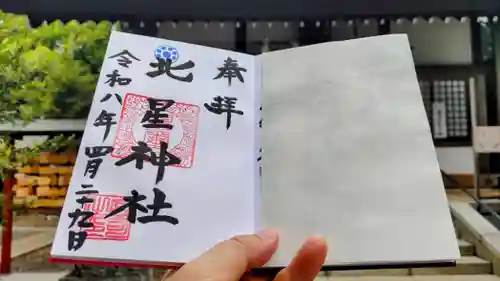 奉拝
北星神社
令和八年四月二十九日